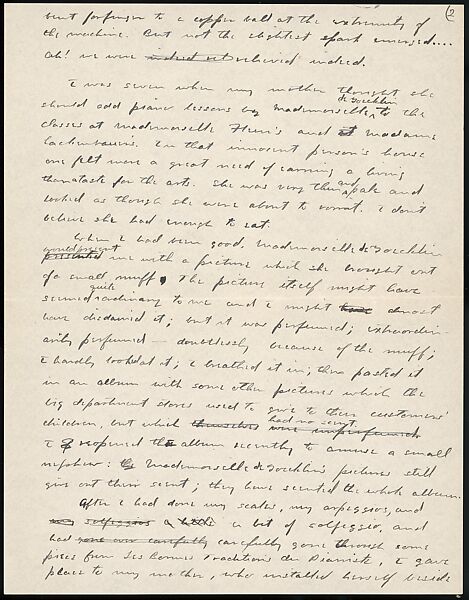 2
bent forefinger to a copper ball at the extremity of
the machine. But not the slightest spark emerged....
Ah! we were indeed relieved indeed.
I was seven when my mother thought she
should add piano lessons by Mademoiselle de Goecklin to the
classes at Mademoiselle and at Madame
In that innocent person's house
one felt more a great need of earning a living
than a taste for the arts. She was very thin and pale and
looked as though she were about to vomit. I don't
believe she had enough to eat.
When I had been good, Mademoiselle de Goecklin
presented would present me with a picture which she brought out
of a small muff. The picture itself might have
seemed quite ordinary to me and I might have almost
have disdained it; but it was perfumed; extraordin-
arily perfumed — doubtlessly because of the muff;
I hardly looked at it; I breathed it in; then pasted it
in an album with some other pictures which the
big department stores used to give to their customers'
children, but which themselves were unperfumed had no scent.
I reopened the album recently to amuse a small
nephew: Mademoiselle de Goecklin's pictures still
give out their scent; they have scented the whole album.
After I had done my scales, my arpeggios, and
my solfeggios a little a bit of solfeggio, and
had gone over carefully carefully gone through some
pieces from Les Bonnes Traditions du Pianiste, I gave
place to my mother, who installed herself beside